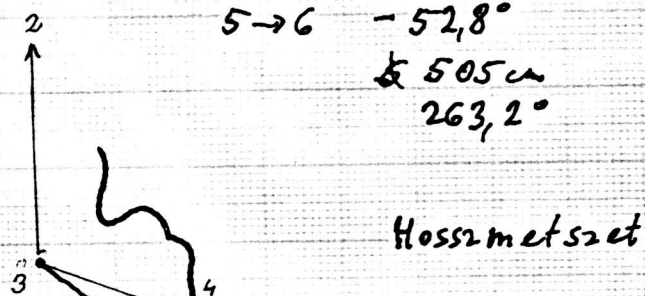 2
5→6 -52,8°
505 cm
263,2°
Hosszmetszet
3
4